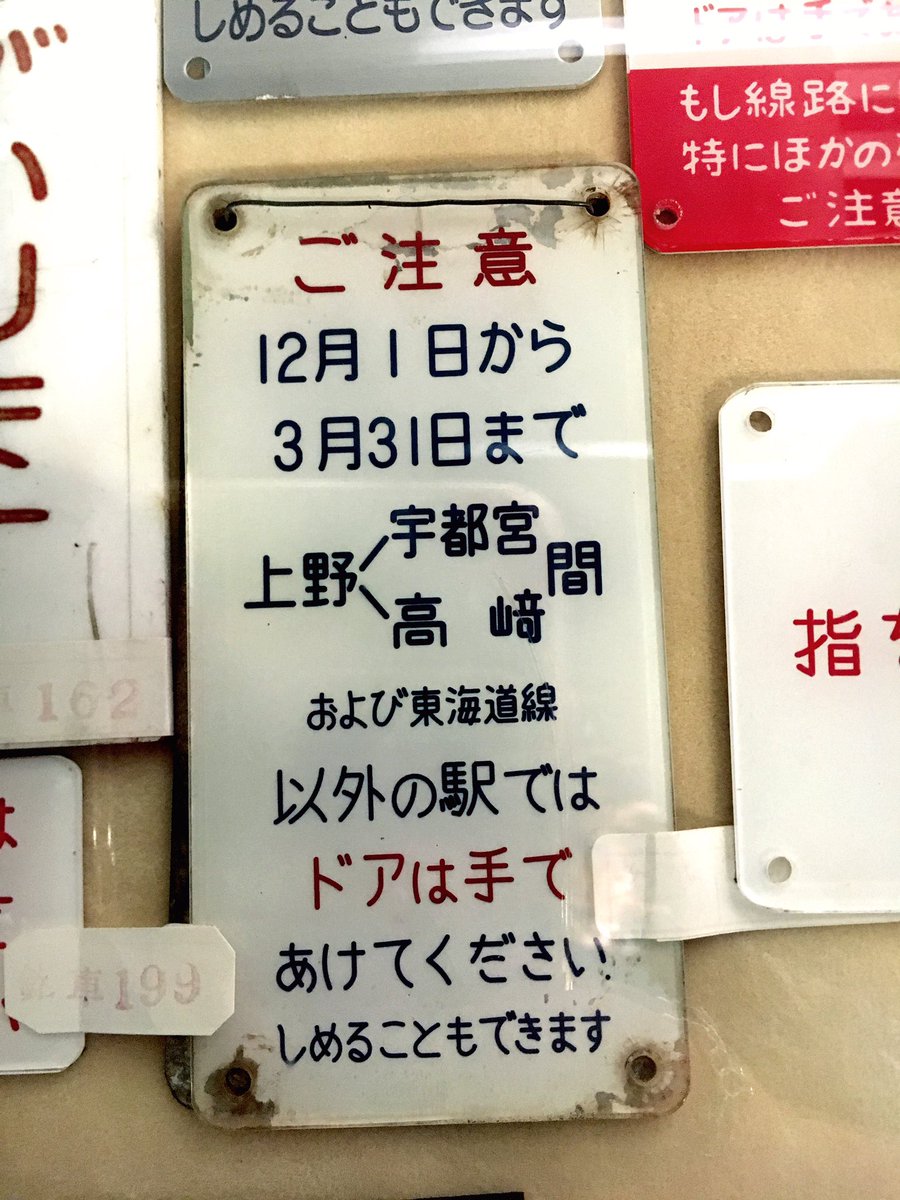 しめることもできます
もし線路に
特にほかの
ご注意
ご注意
12月1日から
3月31日まで
上野 宇都宮 間
高﨑
および東海道線
以外の駅では
ドアは手で
あけてください
しめることもできます
162
199
指